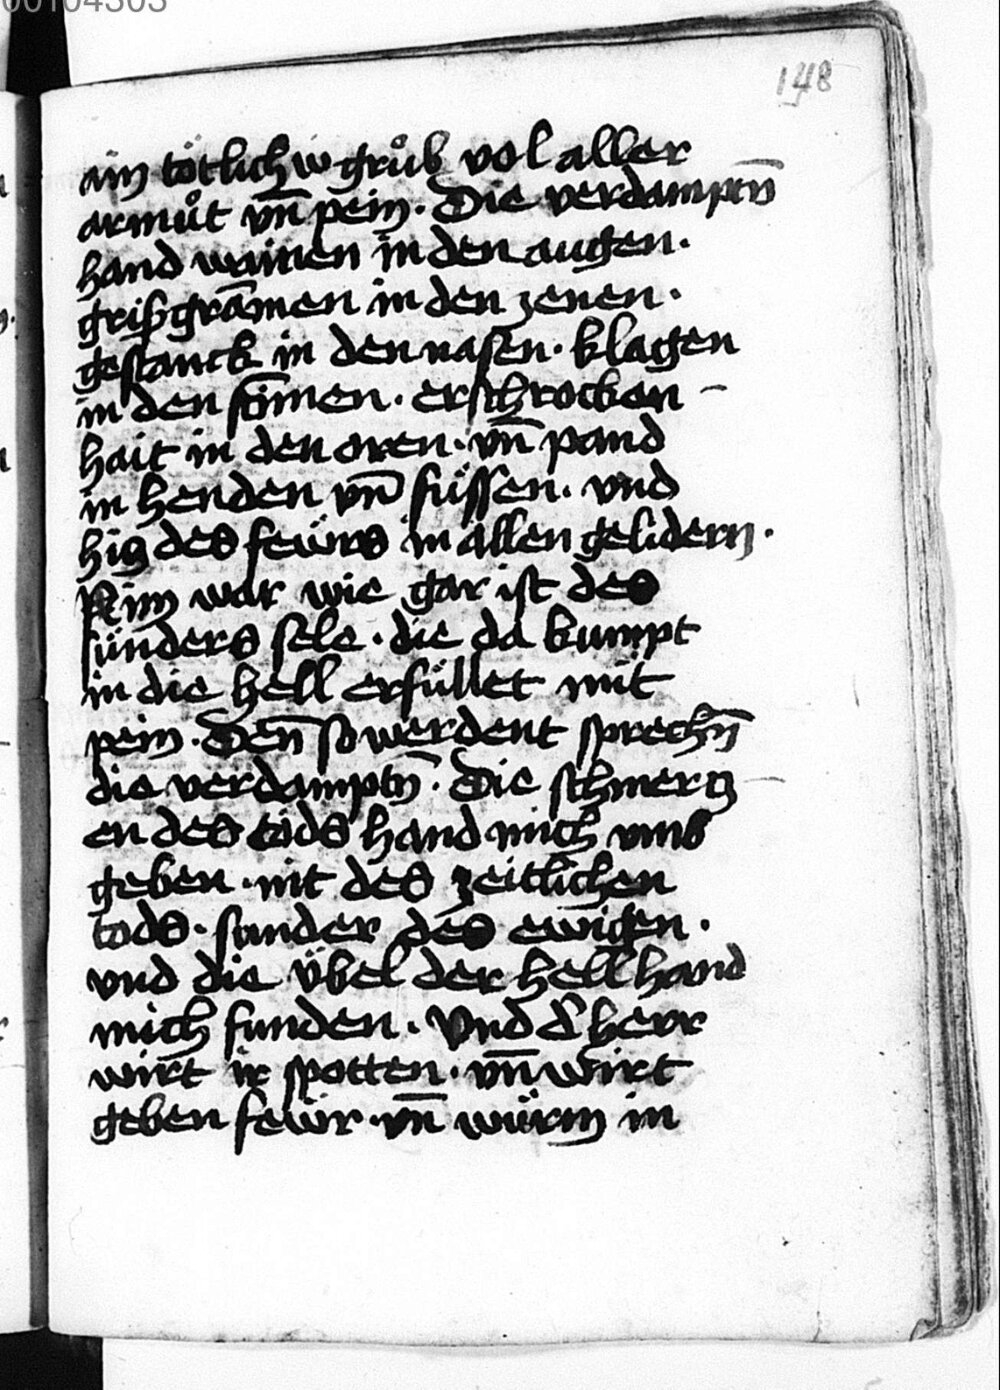 00104303
148
ain tötlichiw grůb vol aller
armůt vn̄ pein. Die verdamptn̄
hand wainen in den augen.
grißgrāmen in den zenen.
gestanck in den nasen. klagen
in den stīmen. erschrocken
hait in den oren. vn̄ pand
in henden vn̄ füssen. vnd
hitz des feẅrs in allen gelidern.
Nim war wie gar ist des
sünders sele. die da kumpt
in die hell erfüllet mit
pein. Den̄ so werdent sprechn̄
die verdamptn̄. Die schmertz
en des tods hand mich vmb
geben. nit des zeitlichen
tods. sunder des ewigen.
vnd die übel der hell hand
mich funden. Vnd d' herr
wirt ir spotten. vn̄ wirt
geben feẅr. vn̄ würm in